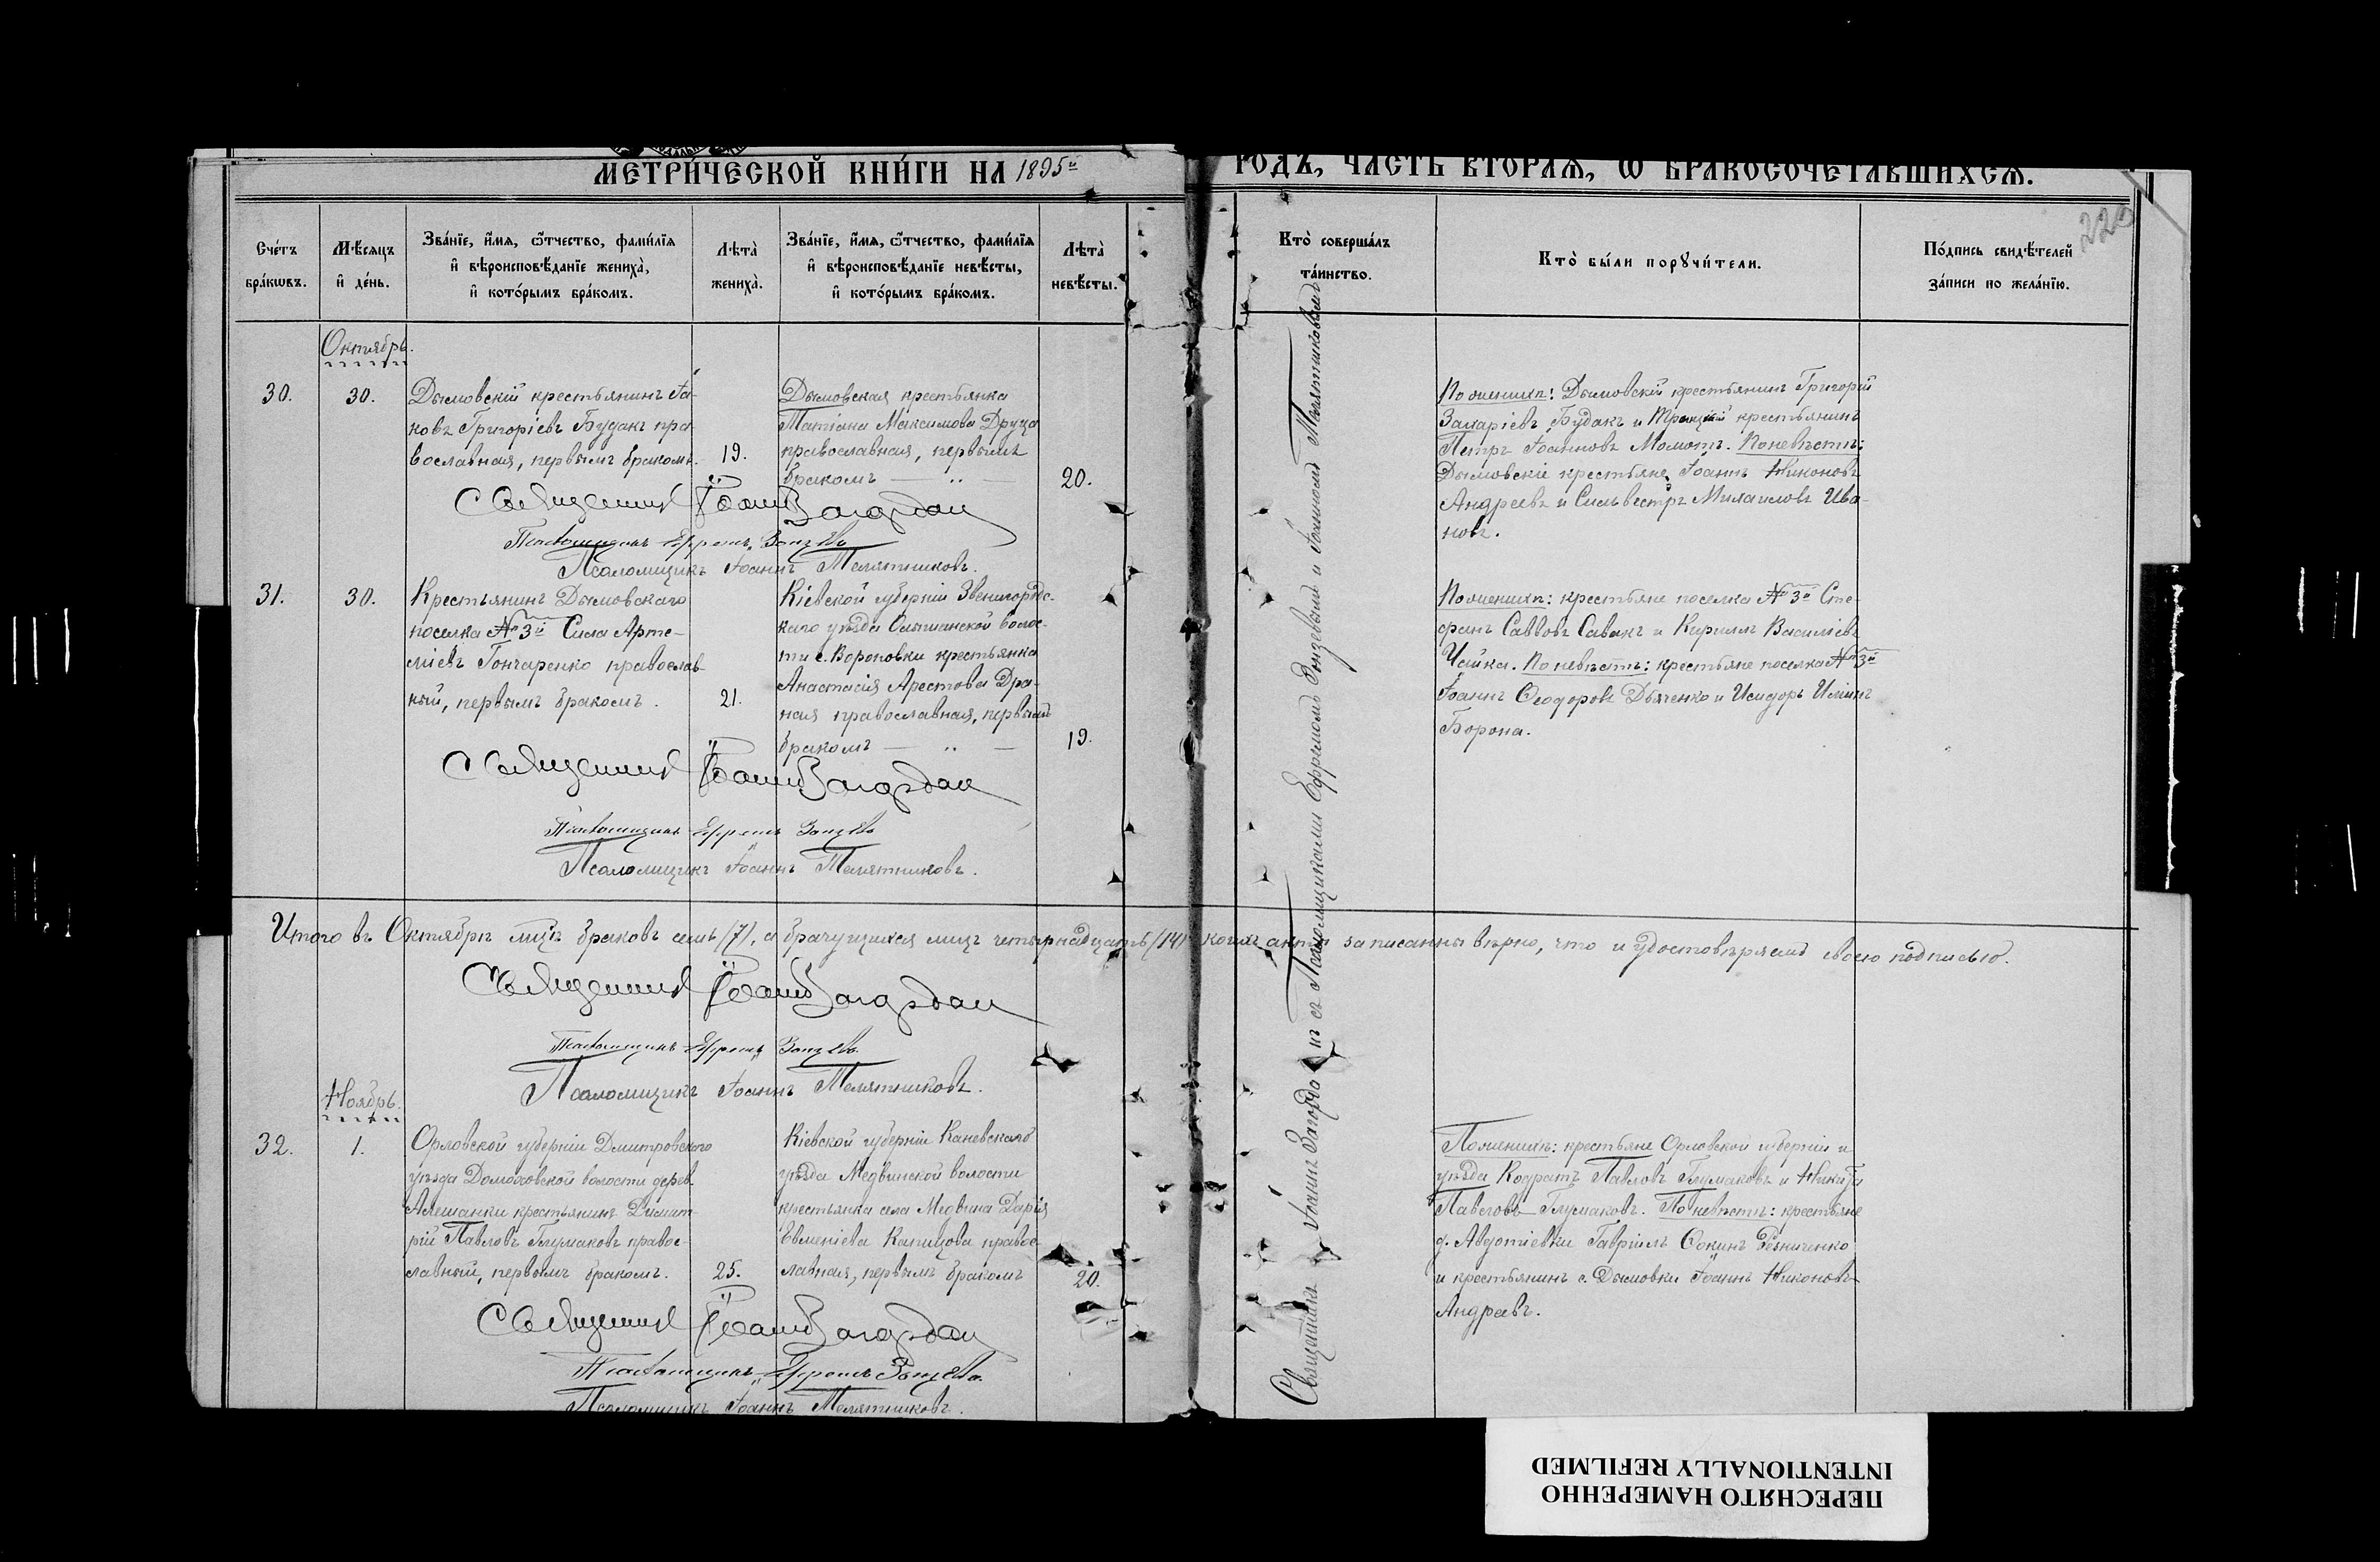 МЕТРИ́ЧЕСКОЙ КНИ́ГИ НА 1895й
ГОДЪ, ЧАСТЬ ВТОРАѦ, Ѡ БРАКОСОЧЕТАВШИХСѦ.
Сче́тъ бра́кѡвъ.
Мѣ́сѧцъ и҆ де́нь.
Зва́нїе, и҆́мѧ, ѻ҆́тчество, фами́лїѧ
и҆ вѣроисповѣ́данїе жениха̀,
и҆ кото́рымъ бра́комъ.
Лѣта̀ жениха̀.
Зва́нїе, и҆́мѧ, ѻ҆́тчество, фами́лїѧ
и҆ вѣроисповѣ́данїе невѣ́сты,
и҆ кото́рымъ бра́комъ.
Лѣта̀ невѣ́сты.
Кто̀ соверша́лъ
та́инство.
Кто̀ бы́ли порꙋчи́тели.
По́дпись свидѣ́телей
за́писи по жела́нїю.
Октябрь.
30.
30.
Дымовскій крестьянинъ Іа-
ковъ Григоріевъ Будакъ пра-
вославная, первымъ бракомъ.
19.
Дымовская крестьянка
Татіана Максимова Друца
православная, первымъ
бракомъ — „ —
20.
По женихѣ: Дымовскій крестьянинъ Григорій
Захаріевъ Будакъ и Троицкій крестьянинъ
Петръ Іоанновъ Момотъ. По невѣстѣ:
Дымовскіе крестьяне, Іоаннъ Никоновъ
Андреевъ и Сильвестръ Михаиловъ Ива-
новъ.
Священникъ Іоаннъ Загордан
Псаломщикъ Ефремъ
Псаломщикъ Іоаннъ Мамятниковъ.
31.
30.
Крестьянинъ Дымовскаго
поселка № 3й Сила Арте-
міевъ Гончаренко православ-
ный, первымъ бракомъ.
21.
Кіевской губерніи Звенигородс-
каго уѣзда Ольшанской волос-
ти с. Вороновки крестьянка
Анастасія Арестова Дра-
ная православная, первымъ
бракомъ — „ —
19.
По женихѣ: крестьяне поселка № 3й Сте-
фанъ Саввовъ Савакъ и Кириллъ Василіевъ
Чайка. По невѣстѣ: крестьяне поселка № 3й
Іоаннъ Ѳеодоровъ Дьяченко и Исидоръ Иліинъ
Борона.
Священникъ Іоаннъ Загордан
Псаломщикъ Ефремъ
Псаломщикъ Іоаннъ Мамятниковъ.
Итого въ Октябрѣ мцѣ браковъ семь /7/, а брачущихся лицъ четырнадцать /14/ коихъ акты записанны вѣрно, что и удостовѣряемъ своею подписью.
Священникъ Іоаннъ Загордан
Псаломщикъ Ефремъ
Псаломщикъ Іоаннъ Мамятниковъ.
Ноябрь.
32.
1.
Орловской губерніи Дмитровскаго
уѣзда Домаховской волости дерев.
Алешанки крестьянинъ Димит-
рій Павловъ Глумаковъ правос-
лавный, первымъ бракомъ.
25.
Кіевской губерніи Каневскаго
уѣзда Медвинской волости
крестьянка села Медвина Дарія
Евменіева Капицова правос-
лавная, первымъ бракомъ
20.
По женихѣ: крестьяне Орловской губерніи и
уѣзда Кодратъ Павловъ Глумаковъ и Никита
Павловъ Глумаковъ. По невѣстѣ: крестьяне
д. Авдотіевки Гавріилъ Ѳокинъ Резниченко
и крестьянинъ с. Дымовки Іоаннъ Никоновъ
Андреевъ.
Священникъ Іоаннъ Загордан
Псаломщикъ Ефремъ
Псаломщикъ Іоаннъ Мамятниковъ.
Священникъ Іоаннъ съ Псаломщиками Ефремомъ и Іоанномъ Мамятниковымъ
ПЕРЕСНЯТО НАМЕРЕННО
INTENTIONALLY REFILMED